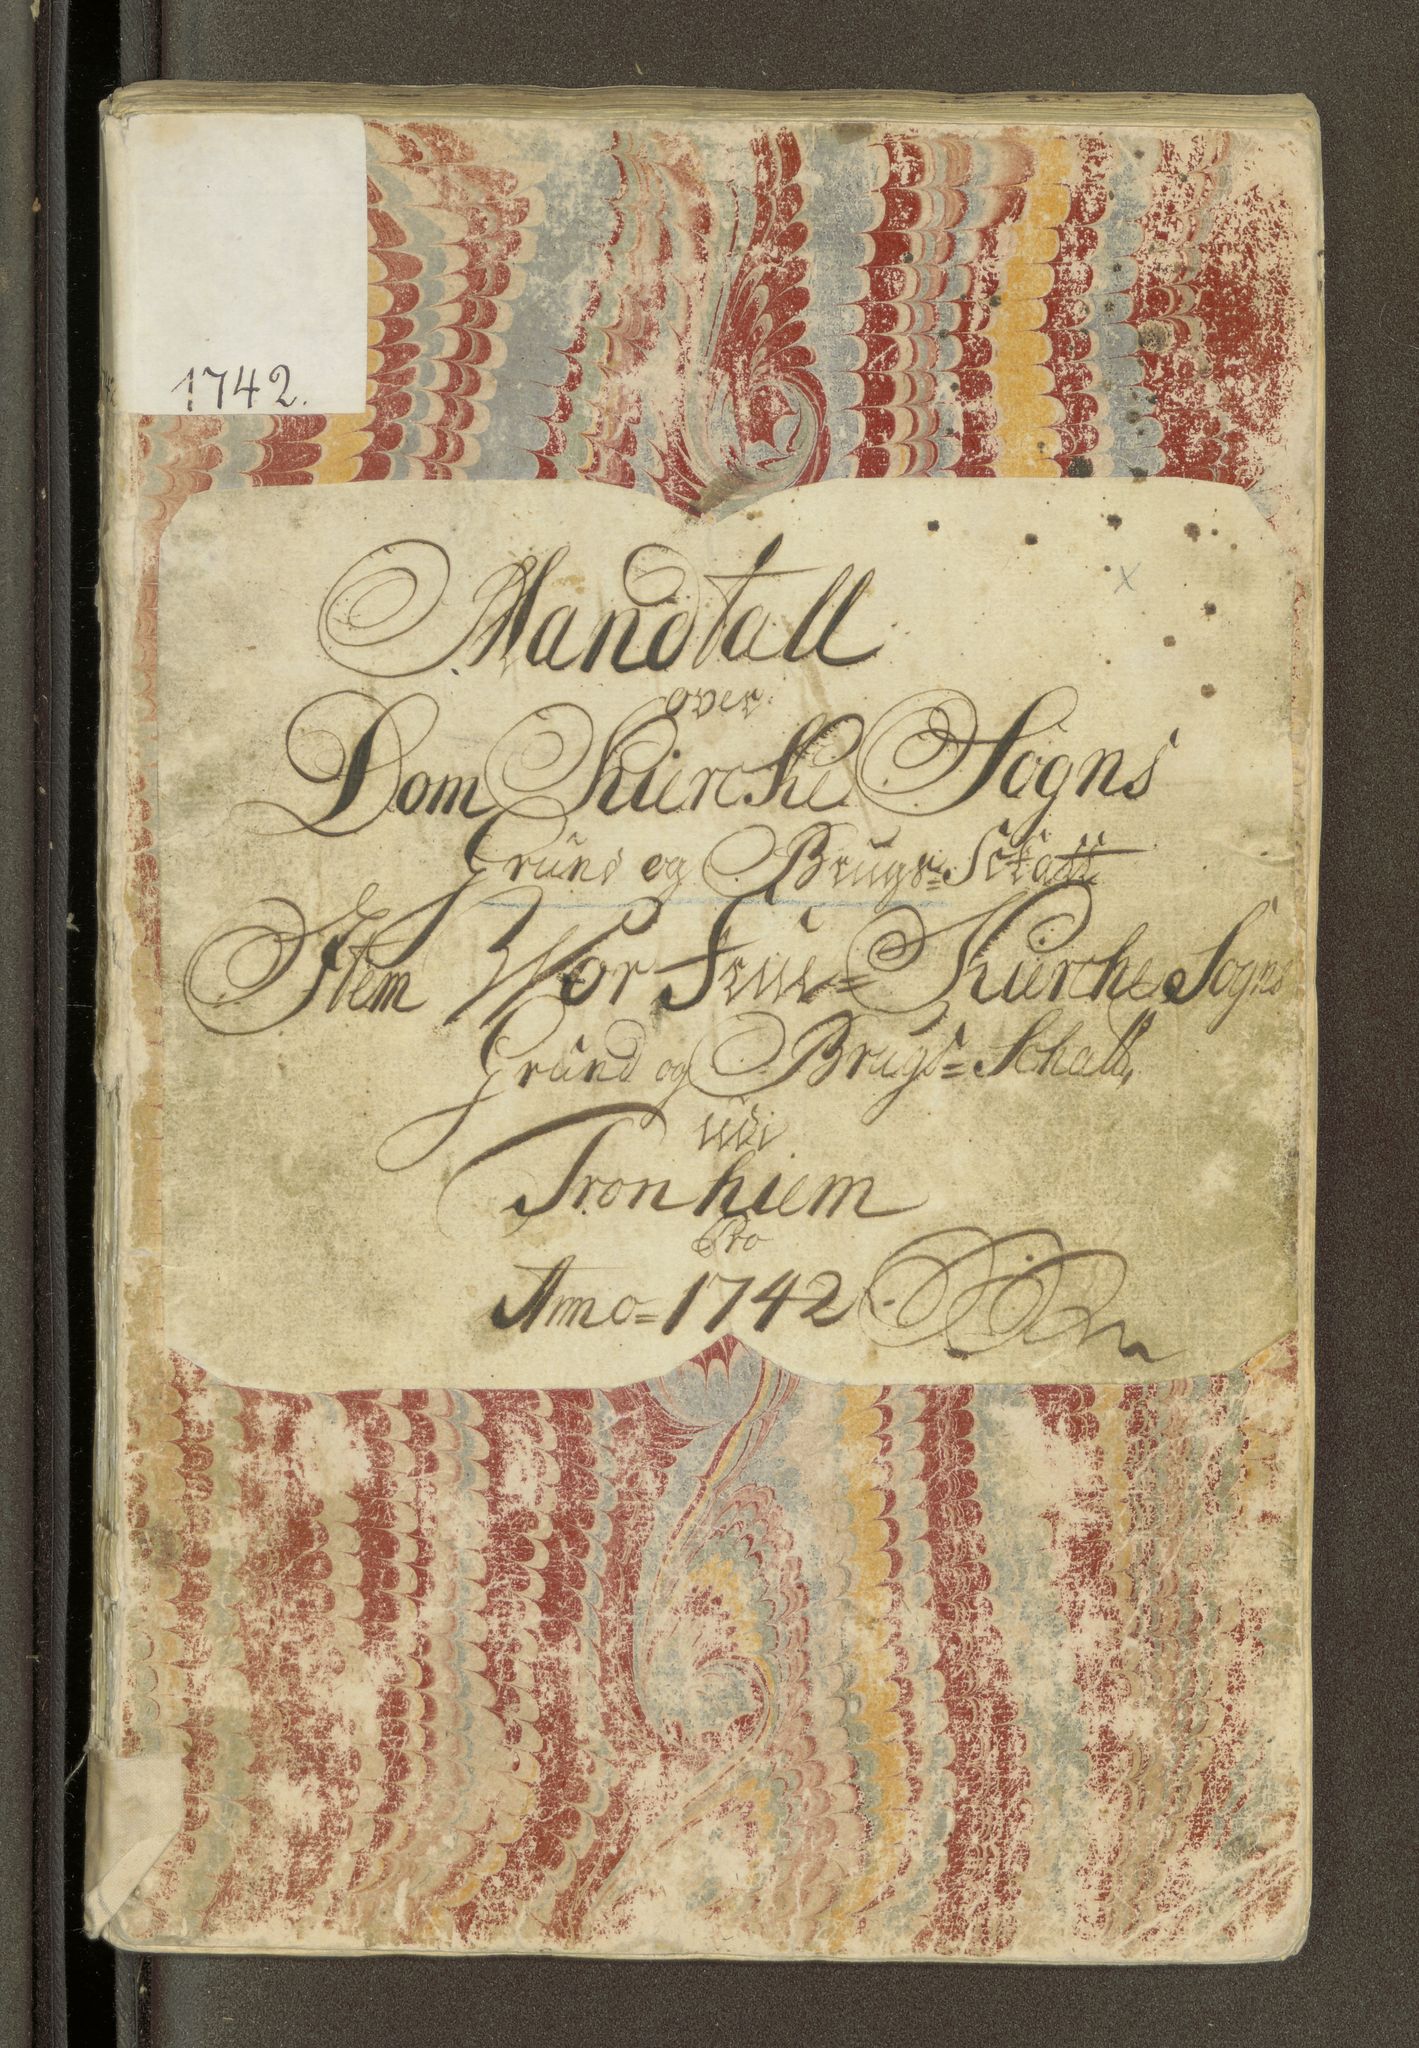 1742.
Mandtall
over
Dom Kiercke Sogns
Grund og Brugs= Schatt
Item Vor Frue= Kierche Sogns
Grund og Brugs= Schatt,
udi
Tronhiem
Pro
Anno= 1742